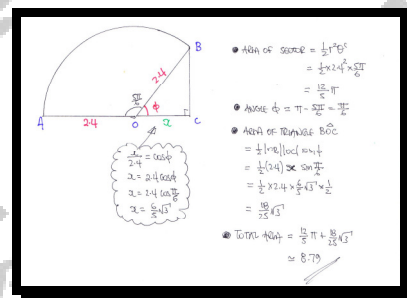 B
2.4
5π/6
φ
A
2.4
O
x
C
x/2.4 = cosφ
x = 2.4 cosφ
x = 2.4 cos π/6
x = 6/5 √3
• AREA OF SECTOR = 1/2 r²θᶜ
= 1/2 × 2.4² × 5π/6
= 12/5 π
• ANGLE φ = π - 5π/6 = π/6
• AREA OF TRIANGLE BÔC
= 1/2 |OB||OC| sinφ
= 1/2 (2.4) x sin π/6
= 1/2 × 2.4 × 6/5 √3 × 1/2
= 18/25 √3
• TOTAL AREA = 12/5 π + 18/25 √3
≃ 8.79